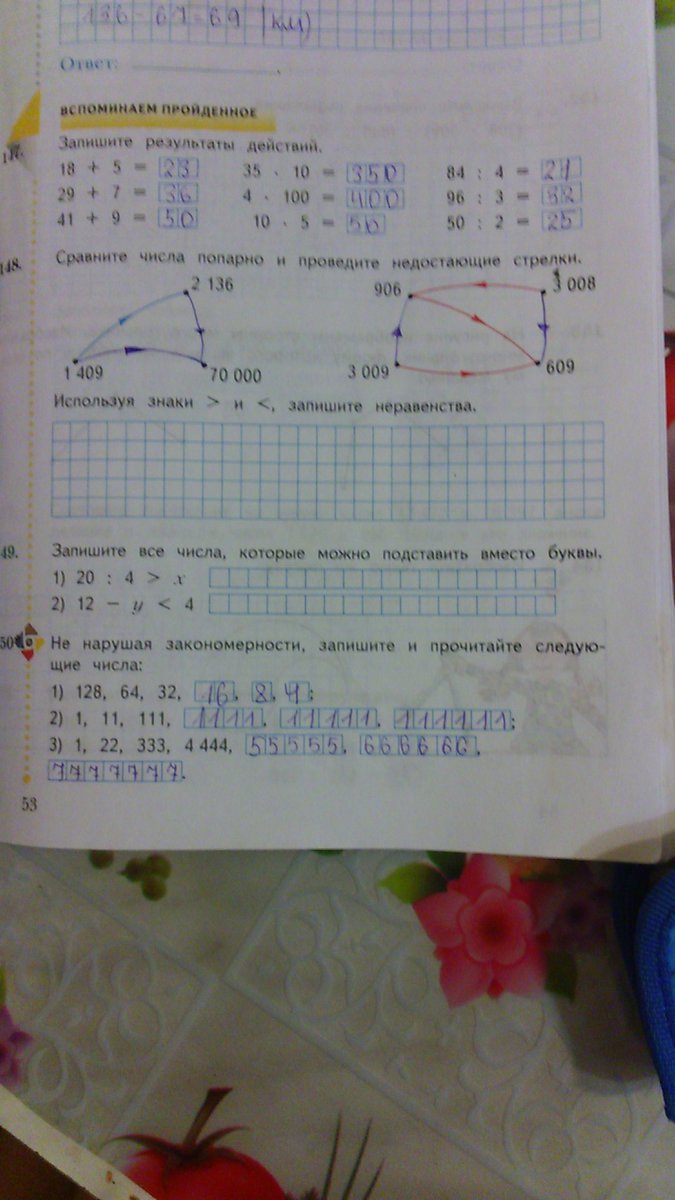 136 - 67 = 69 (км)
Ответ:
ВСПОМИНАЕМ ПРОЙДЕННОЕ
Запишите результаты действий.
18 + 5 = 23 35 · 10 = 350 84 : 4 = 21
29 + 7 = 36 4 · 100 = 400 96 : 3 = 32
41 + 9 = 50 10 · 5 = 50 50 : 2 = 25
148. Сравните числа попарно и проведите недостающие стрелки.
2 136 906 3 008
1 409 70 000 3 009 609
Используя знаки > и <, запишите неравенства.
49. Запишите все числа, которые можно подставить вместо буквы.
1) 20 : 4 > x
2) 12 – y < 4
50 Не нарушая закономерности, запишите и прочитайте следую-
щие числа:
1) 128, 64, 32, 16, 8, 4;
2) 1, 11, 111, 1111, 11111, 111111;
3) 1, 22, 333, 4 444, 55555, 666666,
7777777.
53